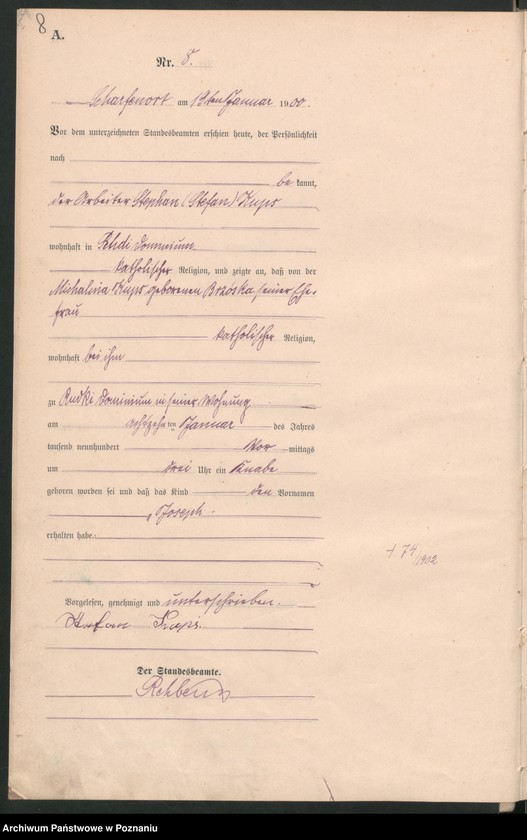 8
A.
Nr. 8.
Scharfenort am 19ten Januar 1900.
Vor dem unterzeichneten Standesbeamten erschien heute, der Persönlichkeit
nach
be kannt,
der Arbeiter Stephan (Stefan) Kups
wohnhaft in Dominium
katholischer Religion, und zeigte an, daß von der
Michalina Kups geborenen Brzoska seiner Ehe-
frau
katholischer Religion,
wohnhaft bei ihm
zu Rudki Dominium in seiner Wohnung
am ten Januar des Jahres
tausend neunhundert Vor mittags
um drei Uhr ein Knabe
geboren worden sei und daß das Kind den Vornamen
Joseph.
erhalten habe.
+ 74/1902
Vorgelesen, genehmigt und unterschrieben.
Stefan
Der Standesbeamte.
Archiwum Państwowe w Poznaniu